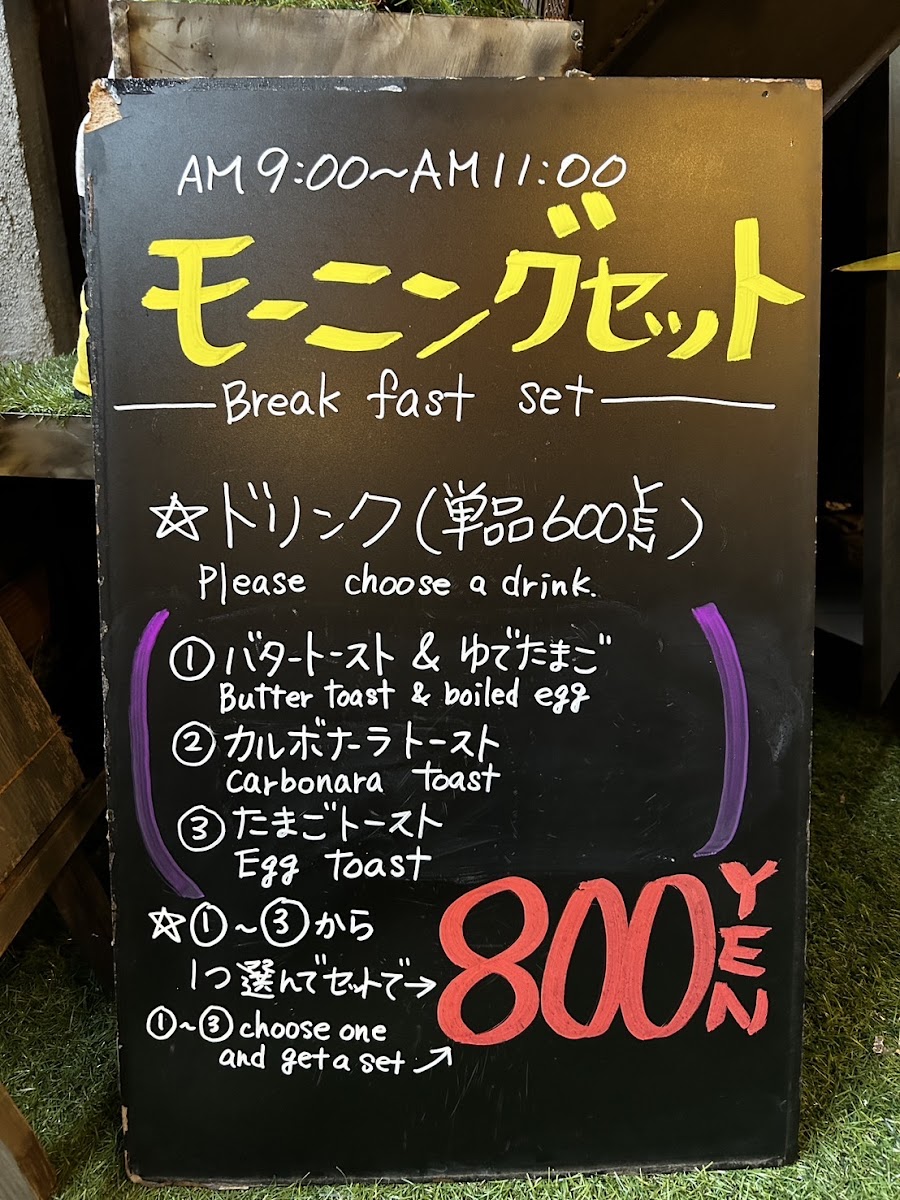 AM 9:00~AM 11:00
モーニングセット
Break fast set
☆ドリンク(単品600YEN)
Please choose a drink.
①バタートースト & ゆでたまご
Butter toast & boiled egg
②カルボナーラトースト
carbonara toast
③たまごトースト
Egg toast
☆①~③から
1つ選んでセットで→
800YEN
①~③choose one
and get a set↗